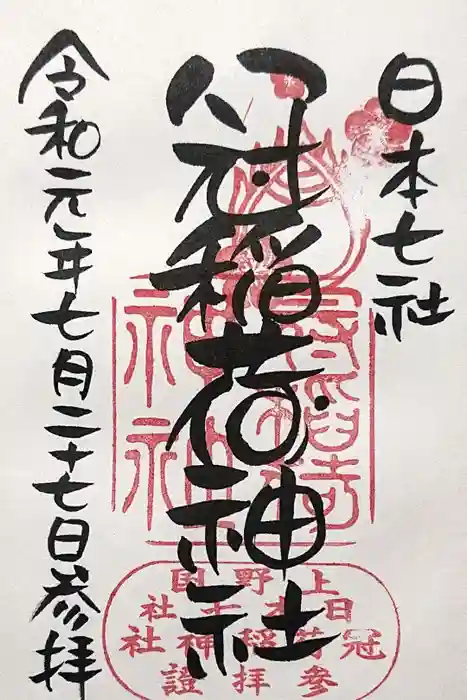 日本七社
冠稲荷神社
令和元年七月二十七日参拝
上野国
日本七社
冠稲荷神社
參拝證